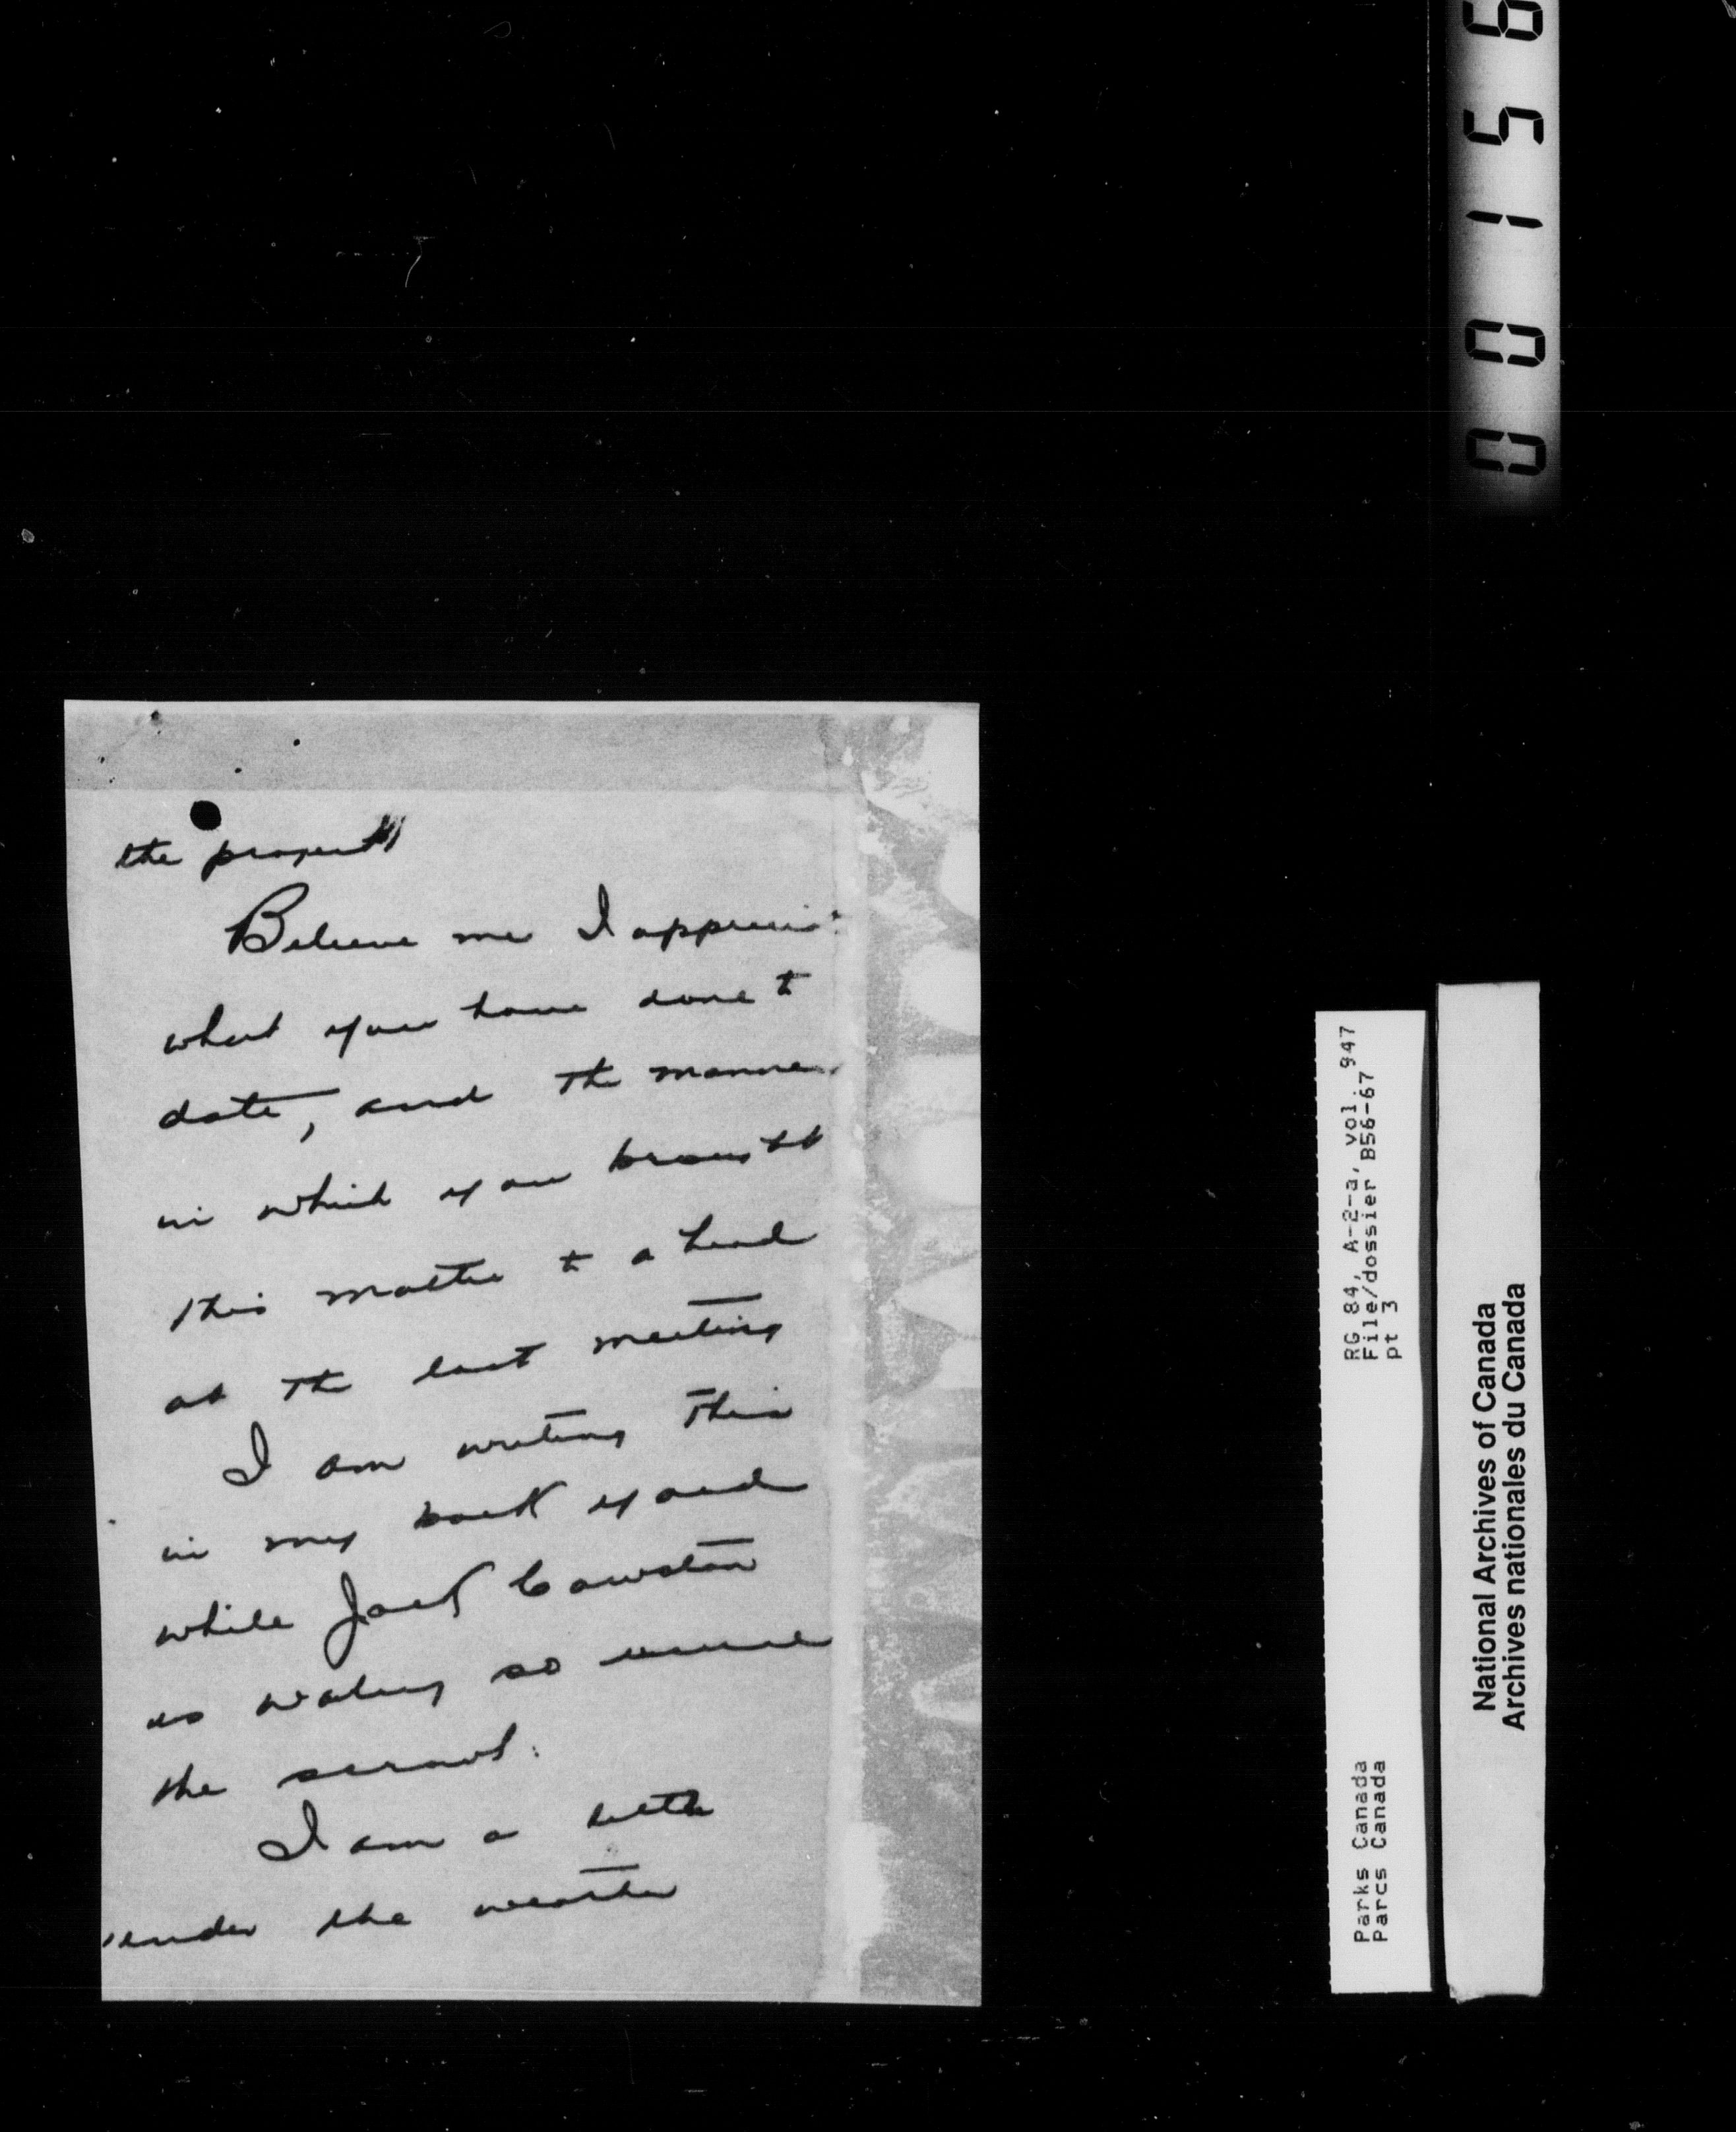 the property
Believe me I appreciate
what you have done to
date, and the manner
in which you brought
this matter to a head
at the last meeting
I am writing this
in my back yard
while Jack Cawston
is waiting so excuse
the scrawl.
I am a little
under the weather
00156
RG 84, A-2-a, vol. 947
File/dossier B56-67
pt 3
Parks Canada
Parcs Canada
National Archives of Canada
Archives nationales du Canada